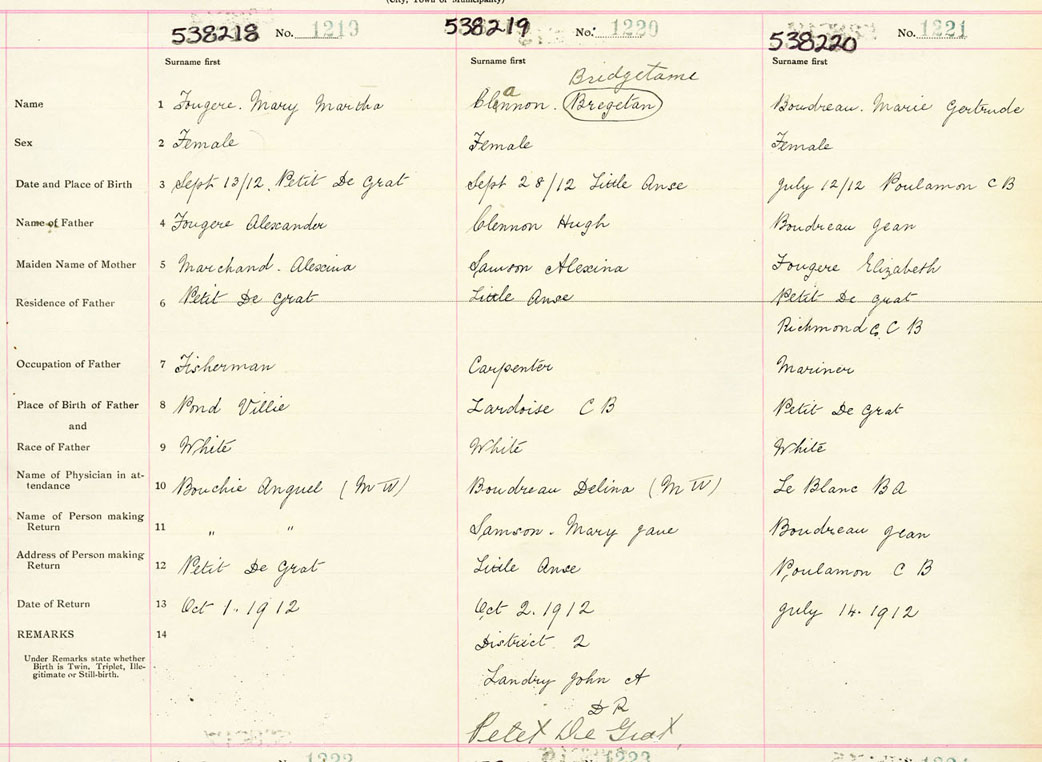 (City, Town or Municipality)
538218 No. 1219 538219 No. 1220 538220 No. 1221
Surname first Surname first Surname first
Bridgetame
Name 1 Fougere. Mary Martha Clannon. Bregetan Boudreau. Marie Gertrude
Sex 2 Female Female Female
Date and Place of Birth 3 Sept 13/12. Petit De Grat Sept 28/12 Little Anse July 12/12 Poulamon C B
Name of Father 4 Fougere Alexander Clennon Hugh Boudreau Jean
Maiden Name of Mother 5 Marchand. Alexina Samson Alexina Fougere Elizabeth
Residence of Father 6 Petit De Grat Little Anse Petit De Grat
Richmond C. C B
Occupation of Father 7 Fisherman Carpenter Mariner
Place of Birth of Father 8 Pond Villie Lardoise C B Petit De Grat
and
Race of Father 9 White White White
Name of Physician in at-
tendance 10 Bouchie Anguel (M W) Boudreau Delina (M W) Le Blanc B A
Name of Person making
Return 11 " " Samson. Mary Jane Boudreau Jean
Address of Person making
Return 12 Petit De Grat Little Anse Poulamon C B
Date of Return 13 Oct 1. 1912 Oct 2. 1912 July 14. 1912
REMARKS 14 District 2
Under Remarks state whether
Birth is Twin, Triplet, Ille-
gitimate or Still-birth.
Landry John A
D R
Petet De Grat
No. 1222 1223